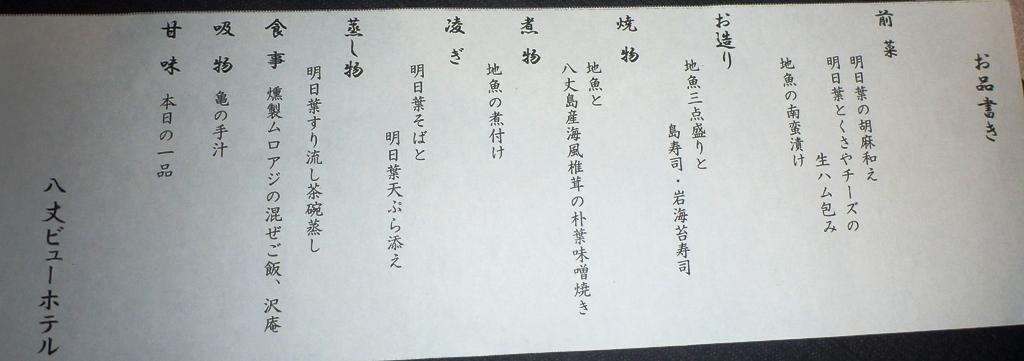 お品書き
前菜
明日葉の胡麻和え
明日葉とくさやチーズの
生ハム包み
地魚の南蛮漬け
お造り
地魚三点盛りと
島寿司・岩海苔寿司
焼物
地魚と
八丈島産海風椎茸の朴葉味噌焼き
煮物
地魚の煮付け
凌ぎ
明日葉そばと
明日葉天ぷら添え
蒸し物
明日葉すり流し茶碗蒸し
食事 燻製ムロアジの混ぜご飯、沢庵
吸物 亀の手汁
甘味 本日の一品
八丈ビューホテル